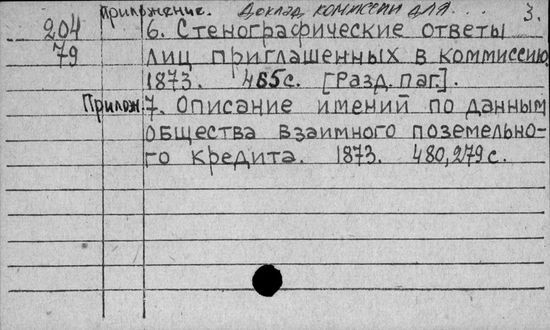 Приложение. Доклад комиссии для... 3.
204 6. Стенографические ответы
79 лиц приглашенных в комиссию,
1873. 465 с. [Разд. паг.].
Прилож. 7. Описание имений по данным
общества взаимного поземельно-
го кредита. 1873. 480,279 с.